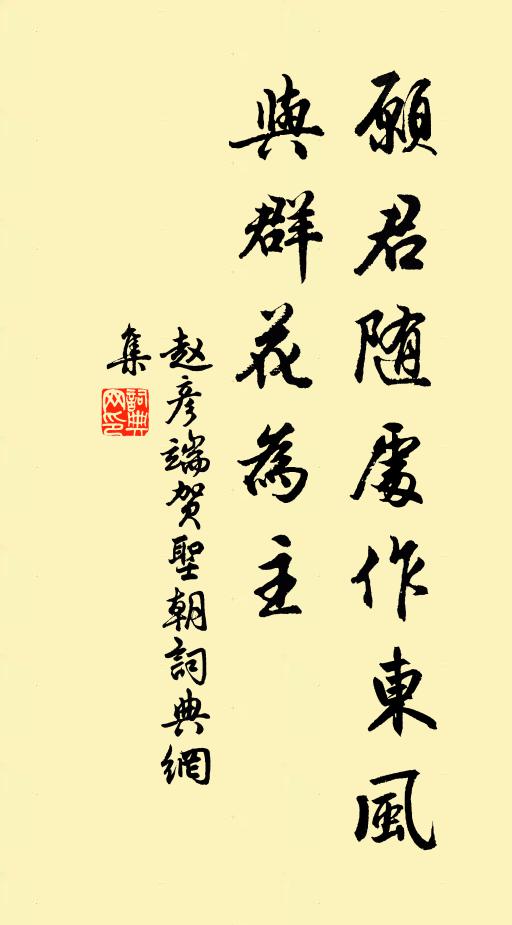 願君随處作東風
與群花為主
赵彦端贺聖朝詞典網
集
詞典網印